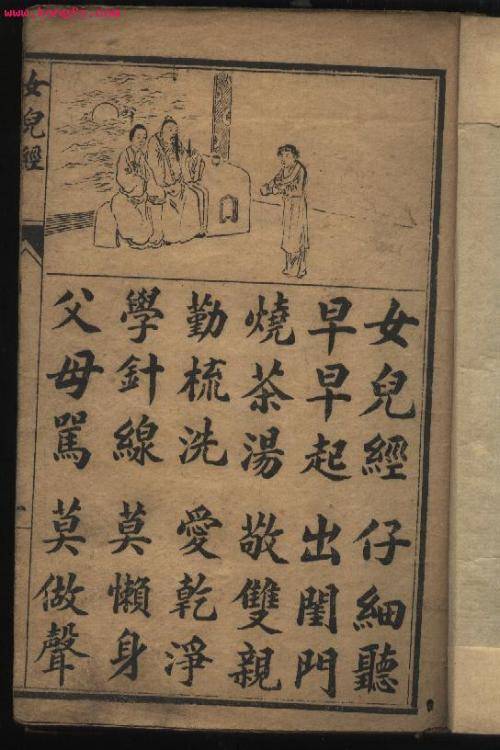 www.kongfz.com
女兒經
女兒經 仔細聽
早早起 出閨門
燒茶湯 敬雙親
勤梳洗 愛乾淨
學針線 莫懶身
父母罵 莫做聲